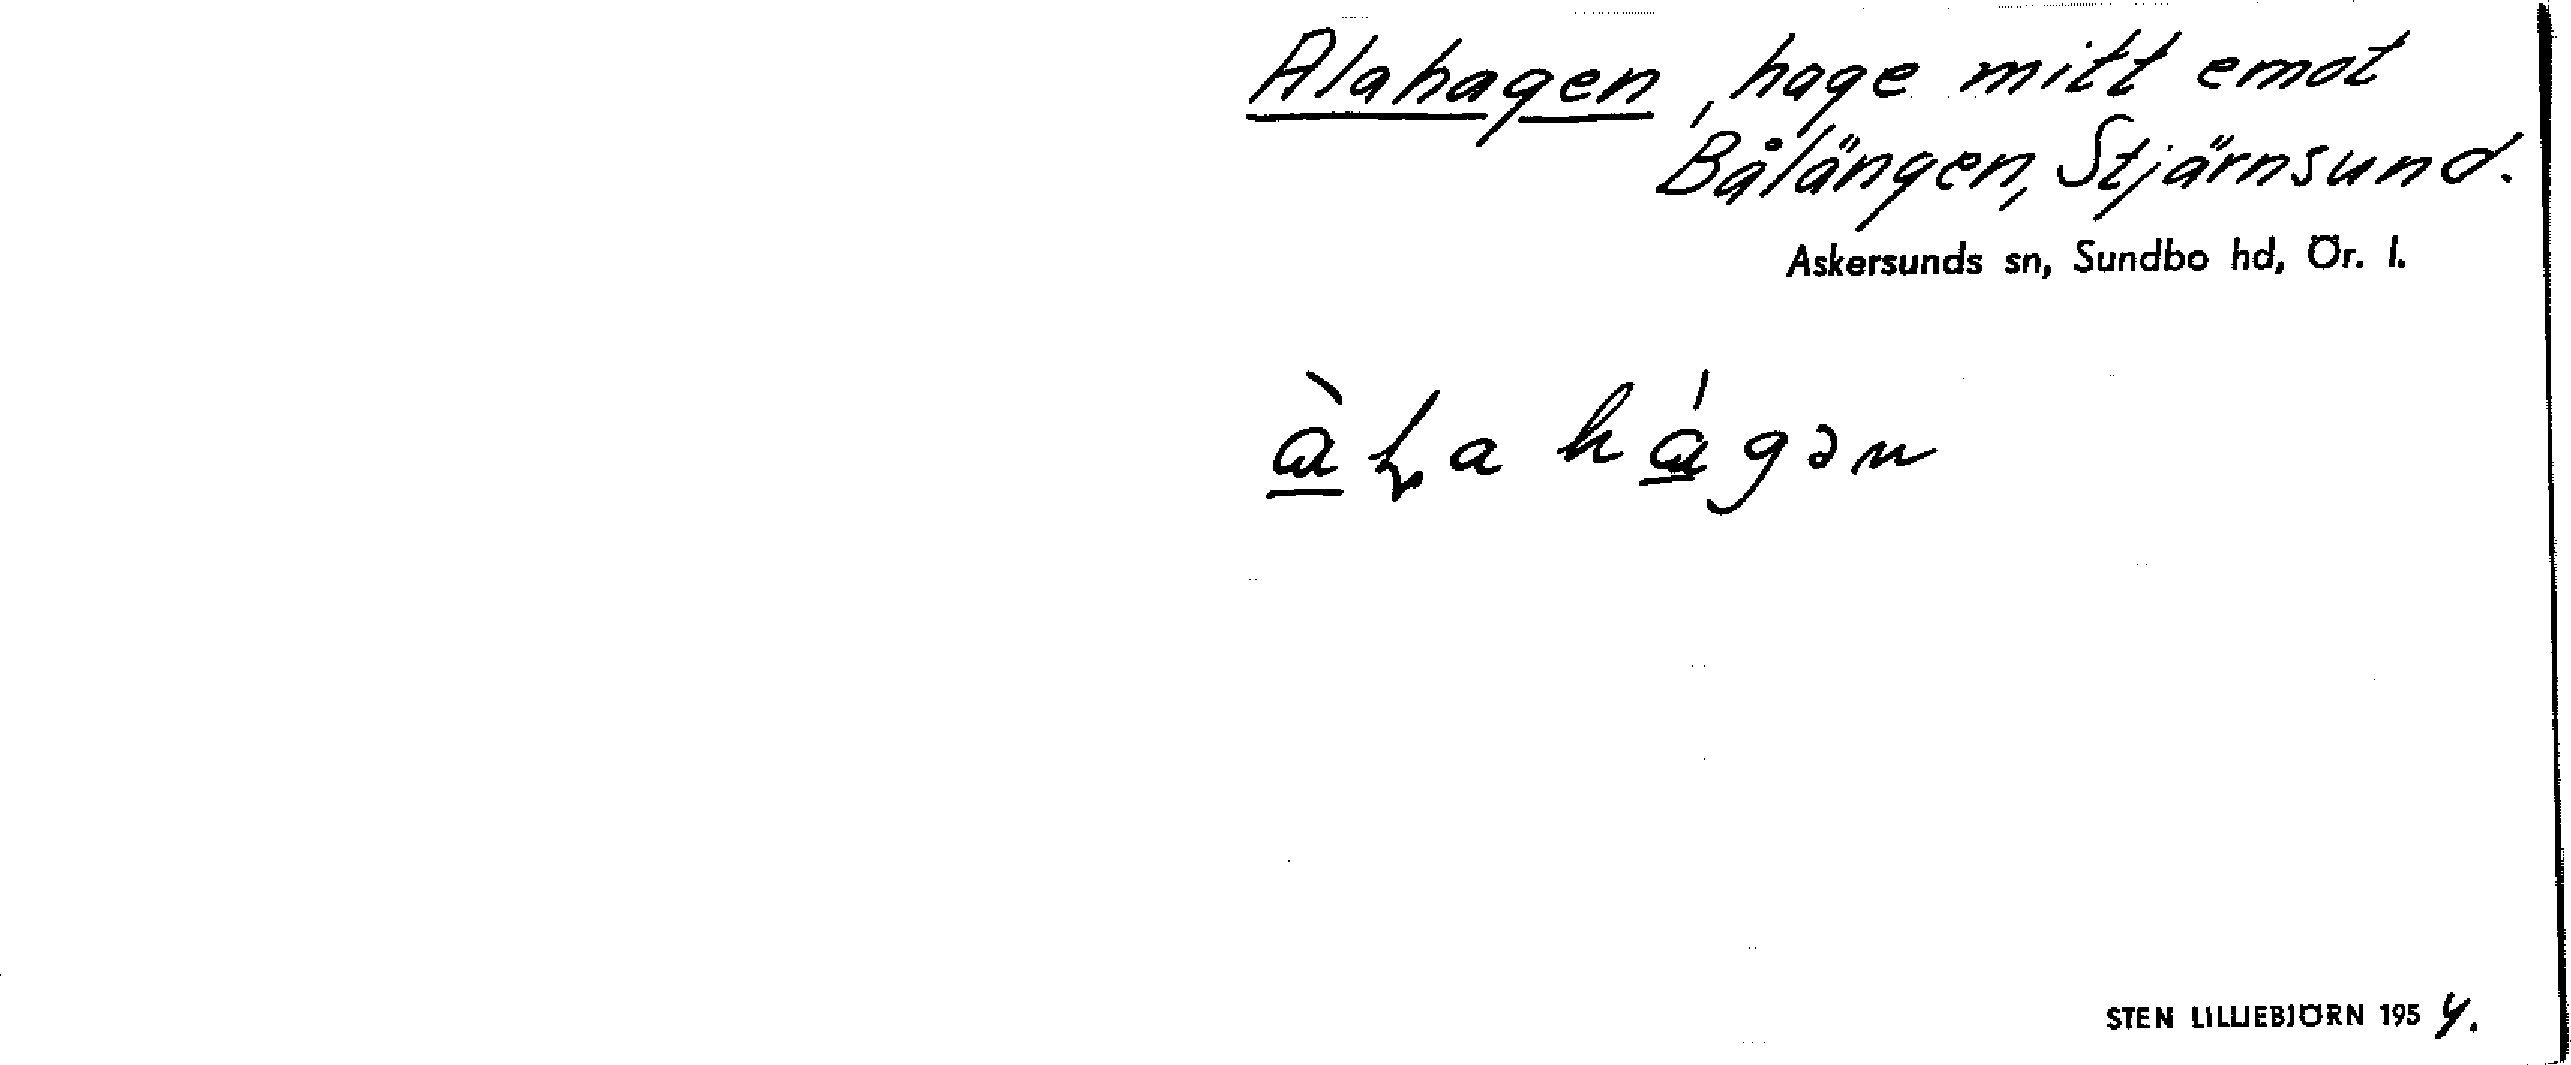 Alahagen, hage mitt emot
Bålängen, Stjärnsund.
Askersunds sn, Sundbo hd, Ör. l.
STEN LILLIEBJÖRN 1954.